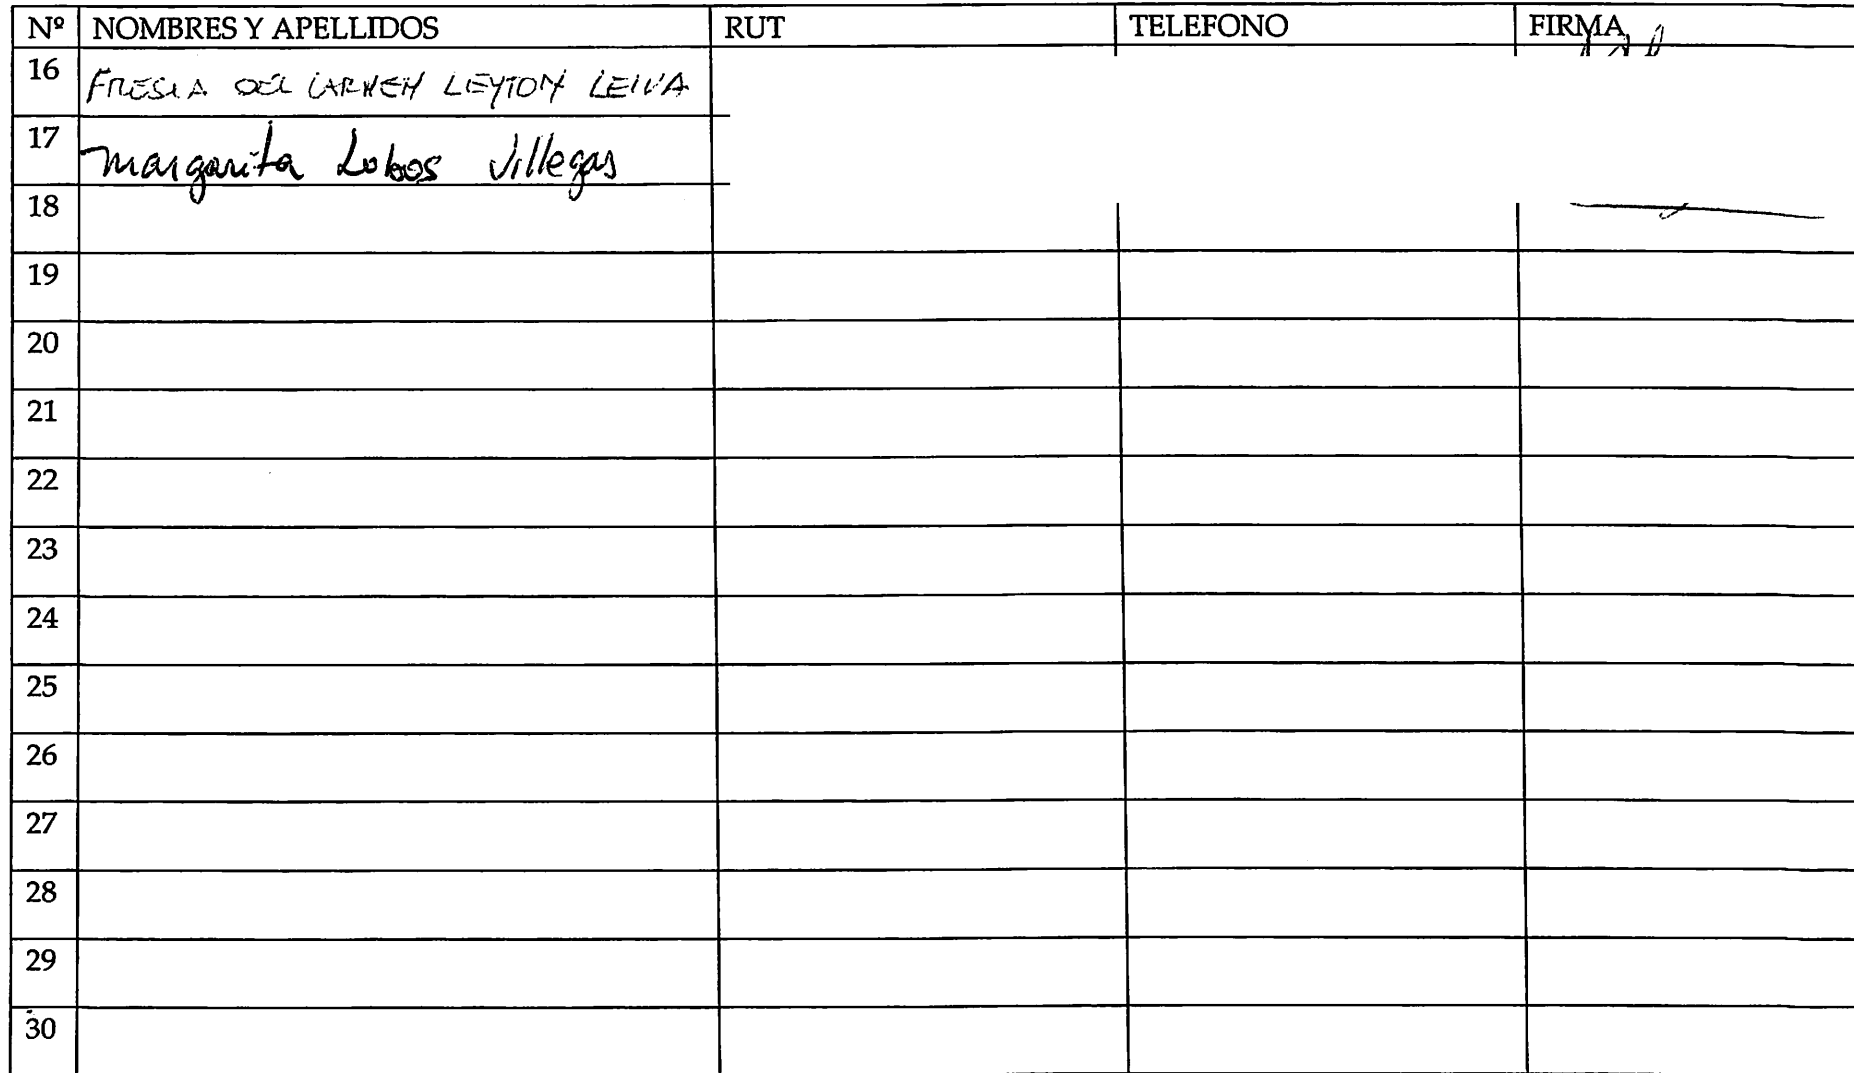 Nº NOMBRES Y APELLIDOS RUT TELEFONO FIRMA
16 FRESIA DEL CARMEN LEYTON LEIVA
17 Margarita Lobos Villegas
18
19
20
21
22
23
24
25
26
27
28
29
30